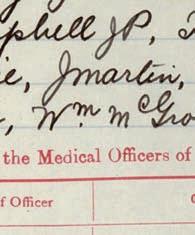 pbell J.P.,
ie, J Martin,
, Wm. McGro
the Medical Officers of
f Officer